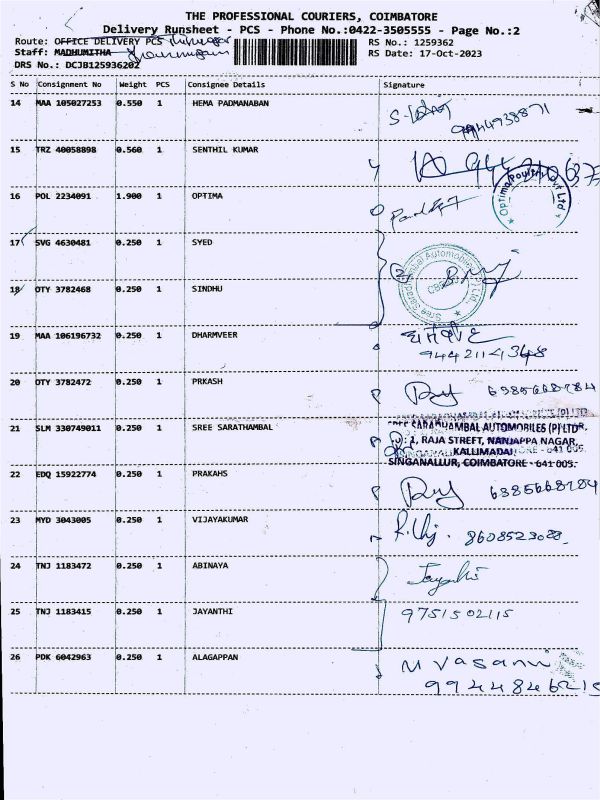 THE PROFESSIONAL COURIERS, COIMBATORE
Delivery Runsheet - PCS - Phone No.:0422-3505555 - Page No.:2
Route: OFFICE DELIVERY PCS
RS No.: 1259362
Staff: MADHUMITHA
RS Date: 17-Oct-2023
DRS No.: DCJB125936202
S No Consignment No Weight PCS Consignee Details Signature
14 MAA 105027253 0.550 1 HEMA PADMANABAN
9944938871
15 TRZ 40058898 0.560 1 SENTHIL KUMAR
16 POL 2234091 1.900 1 OPTIMA
Optima Poultry Pvt Ltd
17 SVG 4630481 0.250 1 SYED
Sree Sarathambal Automobiles (P) Ltd.
18 OTY 3782468 0.250 1 SINDHU
19 MAA 106196732 0.250 1 DHARMVEER
20 OTY 3782472 0.250 1 PRKASH
21 SLM 330749011 0.250 1 SREE SARATHAMBAL
SREE SARATHAMBAL AUTOMOBILES (P) LTD
1, RAJA STREET, NANJAPPA NAGAR,
KALLIMADAI
SINGANALLUR, COIMBATORE - 641 005.
22 EDQ 15922774 0.250 1 PRAKAHS
23 MYD 3043005 0.250 1 VIJAYAKUMAR
8608523088
24 TNJ 1183472 0.250 1 ABINAYA
25 TNJ 1183415 0.250 1 JAYANTHI
9751502115
26 PDK 6042963 0.250 1 ALAGAPPAN
M Vasanu
9944846215